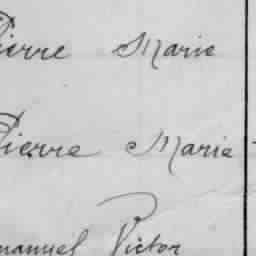 Pierre Marie
Pierre Marie
manuel Victor